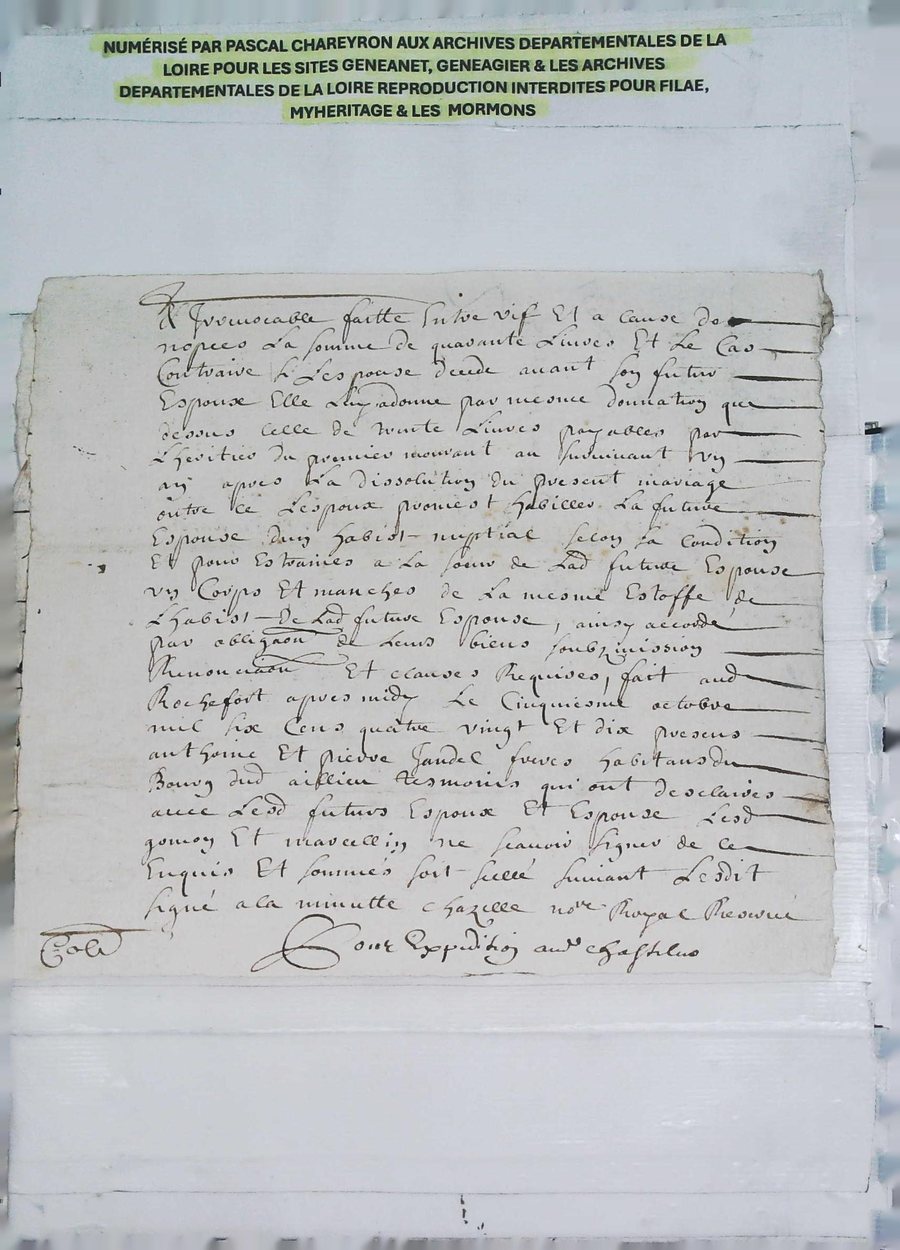 NUMÉRISÉ PAR PASCAL CHAREYRON AUX ARCHIVES DEPARTEMENTALES DE LA
LOIRE POUR LES SITES GENEANET, GENEAGIER & LES ARCHIVES
DEPARTEMENTALES DE LA LOIRE REPRODUCTION INTERDITES POUR FILAE,
MYHERITAGE & LES MORMONS
& Irrevocable faitte Entre vif Et a cause de
nopces La somme de quarante Livres Et Le Cas
Contraire Lespouse decede avant son futur
Espoux Elle Luy a donne par mesme donnation que
dessus Celle de trente Livres payables par
Lheritier du premier mourant au survivant un
an apres La dissolution du present mariage
outre ce Lespoux promest habiller La future
Espouse dung habist nuptial selon sa condition
Et pour Estraines a La soeur de Lad future Espouse
un Corps Et manches de La mesme Estoffe de
Lhabist De Lad future Espouse, ainsy accordé
par obligaon de Leurs biens soubzmission
Renonciaon Et clauses Requises, fait aud
Rochefort apres midy Le Cinquiesme octobre
mil six Cens quatre vingt Et dix presens
anthoine Et pierre Jandel freres habitans du
Bourg dud aillieu tesmoins qui ont desclaires
avec Lesd futurs Espoux Et Espouse Lesd
gomon Et marcellin ne scavoir signer de ce
Enquis Et sommés soit scellé suivant Lesdit
signé a la minutte chazelle nore Royal Reservé
Pour Expedition aud